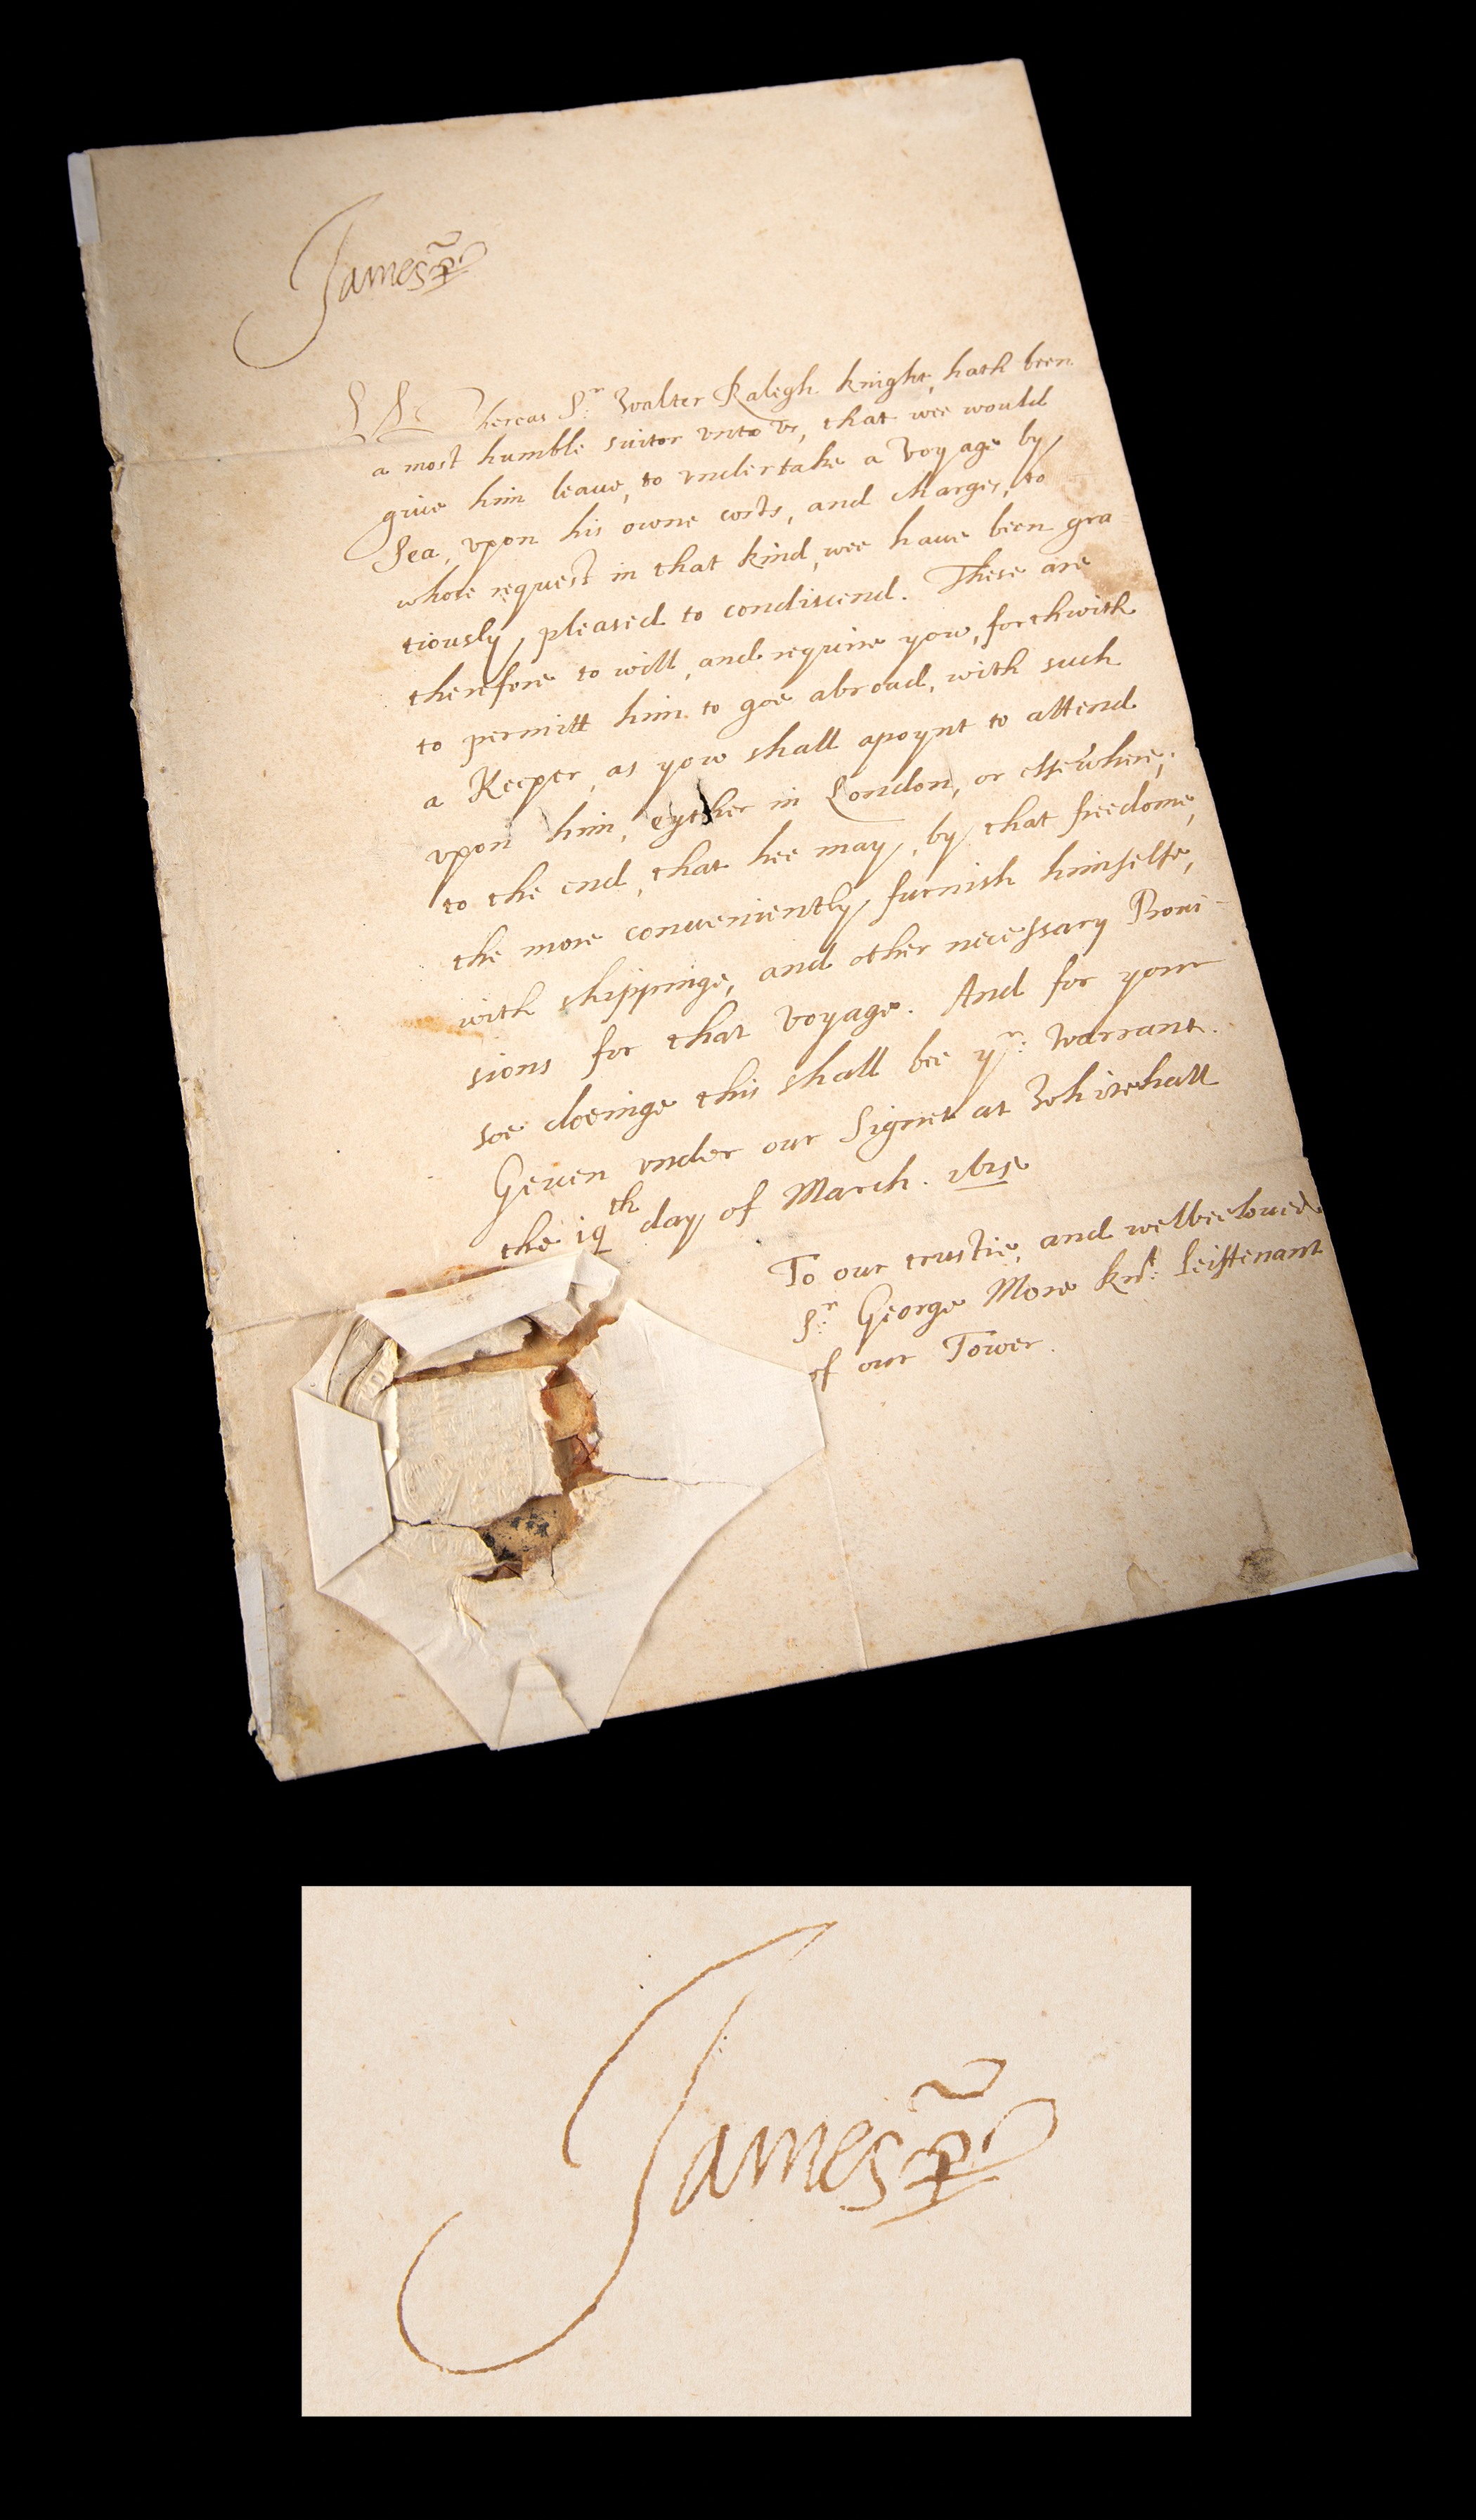 James R
Whereas Sr: Walter Ralegh knight, hath been
a most humble suitor vnto vs, that wee would
giue him leaue, to vndertake a Voyage by
Sea, vpon his owne costs, and charges, to
whose request in that kind, wee haue been gra
tiously, pleased to condiscend. These are
therefore to will, and require yow, forthwith
to permitt him to goe abroad, with such
a Keeper, as yow shall apoynt to attend
vpon him, eyther in London, or elsewhere,
to the end, that hee may, by that freedome,
the more conueniently, furnish himselfe,
with shippinge, and other necessary Proui-
sions for that Voyage. And for your
soe doeinge this shall bee yr: Warrant.
Geuen vnder our Signet at Whitehall
the 19th day of March. 1615
To our trustie, and welbeeloued
Sr: George More knt: Leiftenant
of our Tower.
James R